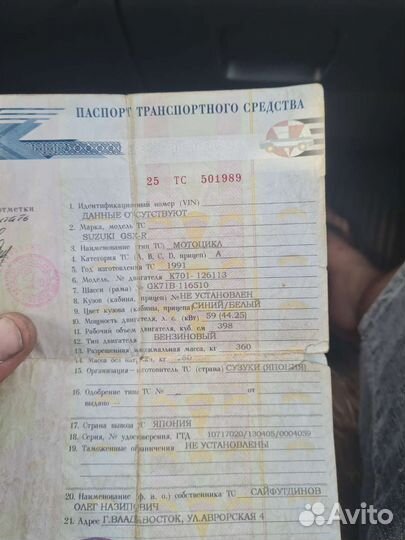 ПАСПОРТ ТРАНСПОРТНОГО СРЕДСТВА
25 ТС 501989
отметки
1. Идентификационный номер (VIN)
ДАННЫЕ ОТСУТСТВУЮТ
2. Марка, модель ТС
SUZUKI GSX-R
3. Наименование (тип ТС) МОТОЦИКЛ
4. Категория ТС (A, B, C, D, прицеп) A
5. Год изготовления ТС 1991
6. Модель, № двигателя K701- 126113
7. Шасси (рама) № GK71B-116510
8. Кузов (кабина, прицеп) № НЕ УСТАНОВЛЕН
9. Цвет кузова (кабины, прицепа) СИНИЙ/БЕЛЫЙ
10. Мощность двигателя, л. с. (кВт) 59 (44.25)
11. Рабочий объем двигателя, куб. см 398
12. Тип двигателя БЕНЗИНОВЫЙ
13. Разрешенная максимальная масса, кг 360
14. Масса без нагрузки, кг
15. Организация-изготовитель ТС (страна) СУЗУКИ (ЯПОНИЯ)
16. Одобрение типа ТС № от
выдано
17. Страна вывоза ТС ЯПОНИЯ
18. Серия, № удостоверения, ГТД 10717020/130405/0004059
19. Таможенные ограничения НЕ УСТАНОВЛЕНЫ
20. Наименование (ф. и. о.) собственника ТС САЙФУТДИНОВ
ОЛЕГ НАЗИПОВИЧ
21. Адрес Г.ВЛАДИВОСТОК, УЛ.АВРОРСКАЯ 4
Avito